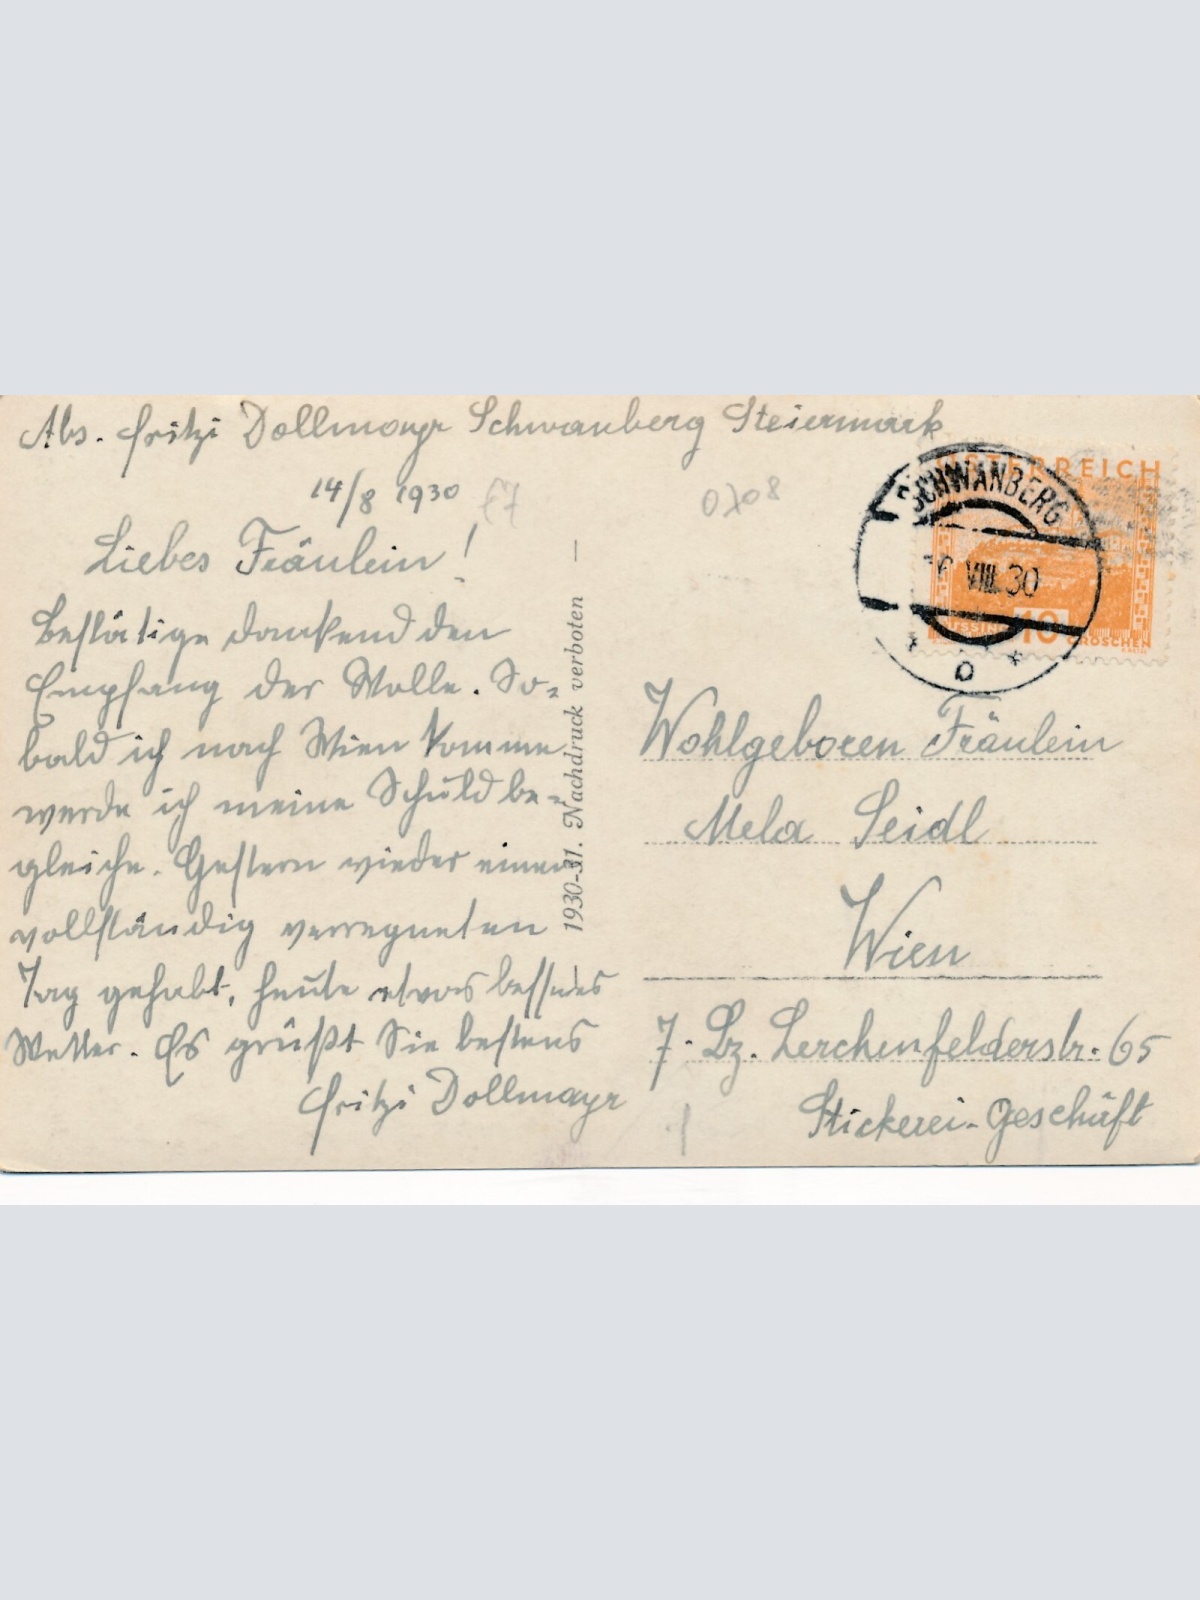 Abs. Fritzi Dollmayr Schwanberg Steiermark
14/8 1930
0708
Liebes Fräulein!
Bestätige dankend den
Empfang der Wolle. So=
bald ich nach Wien komme
werde ich meine Schuld be=
gleiche. Gestern wieder einen
vollständig verregneten
Tag gehabt, heute etwas besseres
Wetter. Es grüßt Sie bestens
Fritzi Dollmayr
1930-31. Nachdruck verboten
ÖSTERREICH
10
GROSCHEN
SCHWANBERG
VIII.30
Wohlgeboren Fräulein
Mela Seidl
Wien
7. Bz. Lerchenfelderstr. 65
Stickerei-Geschäft